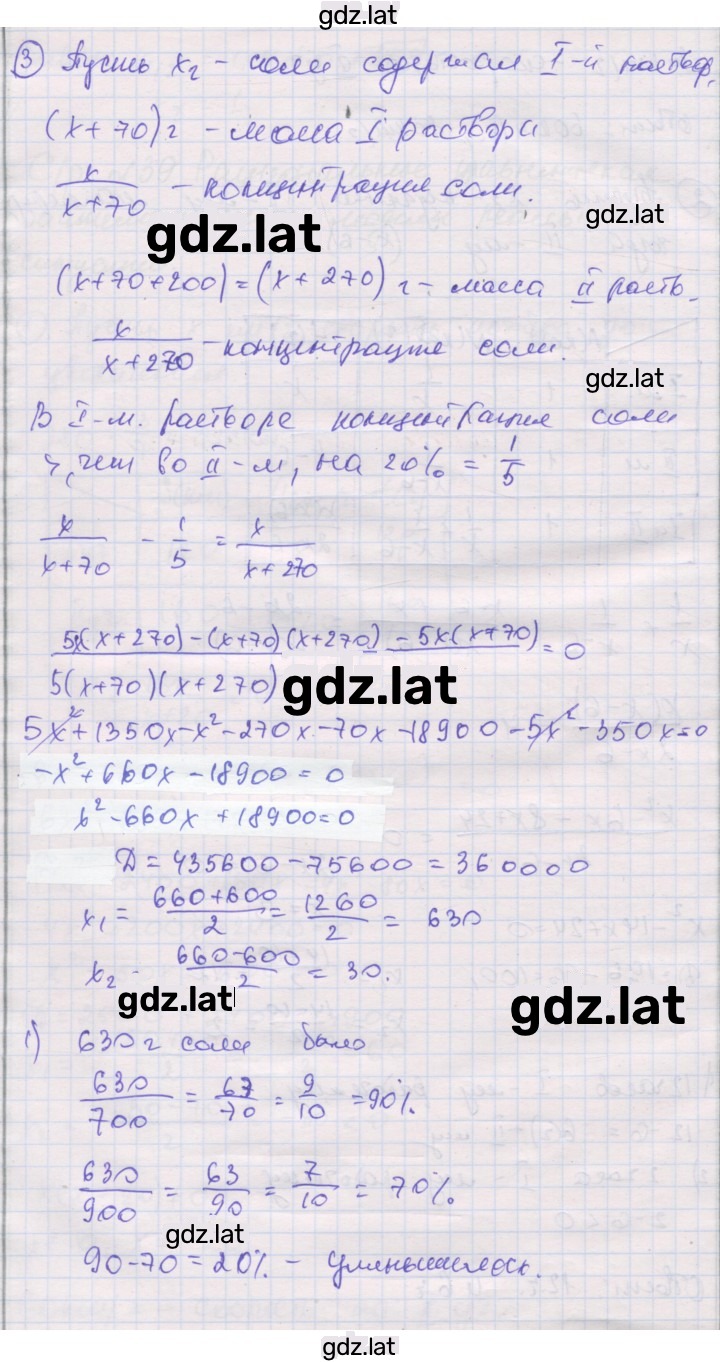 gdz.lat
③ Пусть x г - соли содержал I-й раствор,
(x+70) г - масса I раствора
x/(x+70) - концентрация соли.
gdz.lat
gdz.lat
(x+70+200) = (x+270) г - масса II раств.
x/(x+270) - концентрация соли.
gdz.lat
В I-м. растворе концентрация соли
, чем во II-м, на 20% = 1/5
x/(x+70) - 1/5 = x/(x+270)
(5x(x+270) - (x+70)(x+270) - 5x(x+70))/(5(x+70)(x+270)) = 0
gdz.lat
5x² + 1350x - x² - 270x - 70x - 18900 - 5x² - 350x = 0
-x² + 660x - 18900 = 0
x² - 660x + 18900 = 0
Д = 435600 - 75600 = 360000
x₁ = (660+600)/2 = 1260/2 = 630
x₂ - (660-600)/2 = 30.
gdz.lat
gdz.lat
1) 630 г соли было
630/700 = 67/70 = 9/10 = 90%.
630/900 = 63/90 = 7/10 = 70%.
gdz.lat
90-70 = 20% - уменьшилось.
gdz.lat